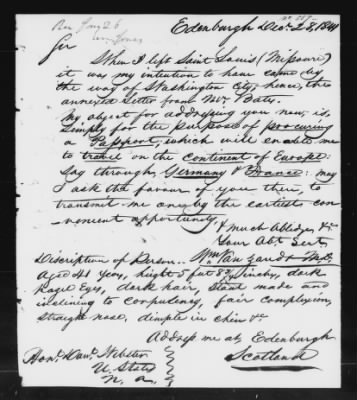 Rec Jany 26
Edenburgh Decr. 28, 1841
Sir
When I left Saint Louis (Missouri)
it was my intintion to have came by
the way of Washington City; hence, the
annexed Letter from Mr. Bates.
My object for addressing you now, is,
Simply for the purpose of procuring
a Passport, which will enable me
to travel on the continent of Europe.
Say through Germany & France: may
I ask the favour of you then, to
transmit me one, by the earliest con-
-venient opportunity,
& much Abliege &c
Your Abt. Sert.
Wm.
Discription of Person.
Aged 41 years, hight 5 feet 8 1/2 inches, dark
Hazle Eyes, dark hair, Stout made and
inclining to corpulency, fair complexion,
straight nose, dimple in chin &c
Address me at, Edenburgh
Scotland
Honl. Danl. Webster
U. States
N. A.